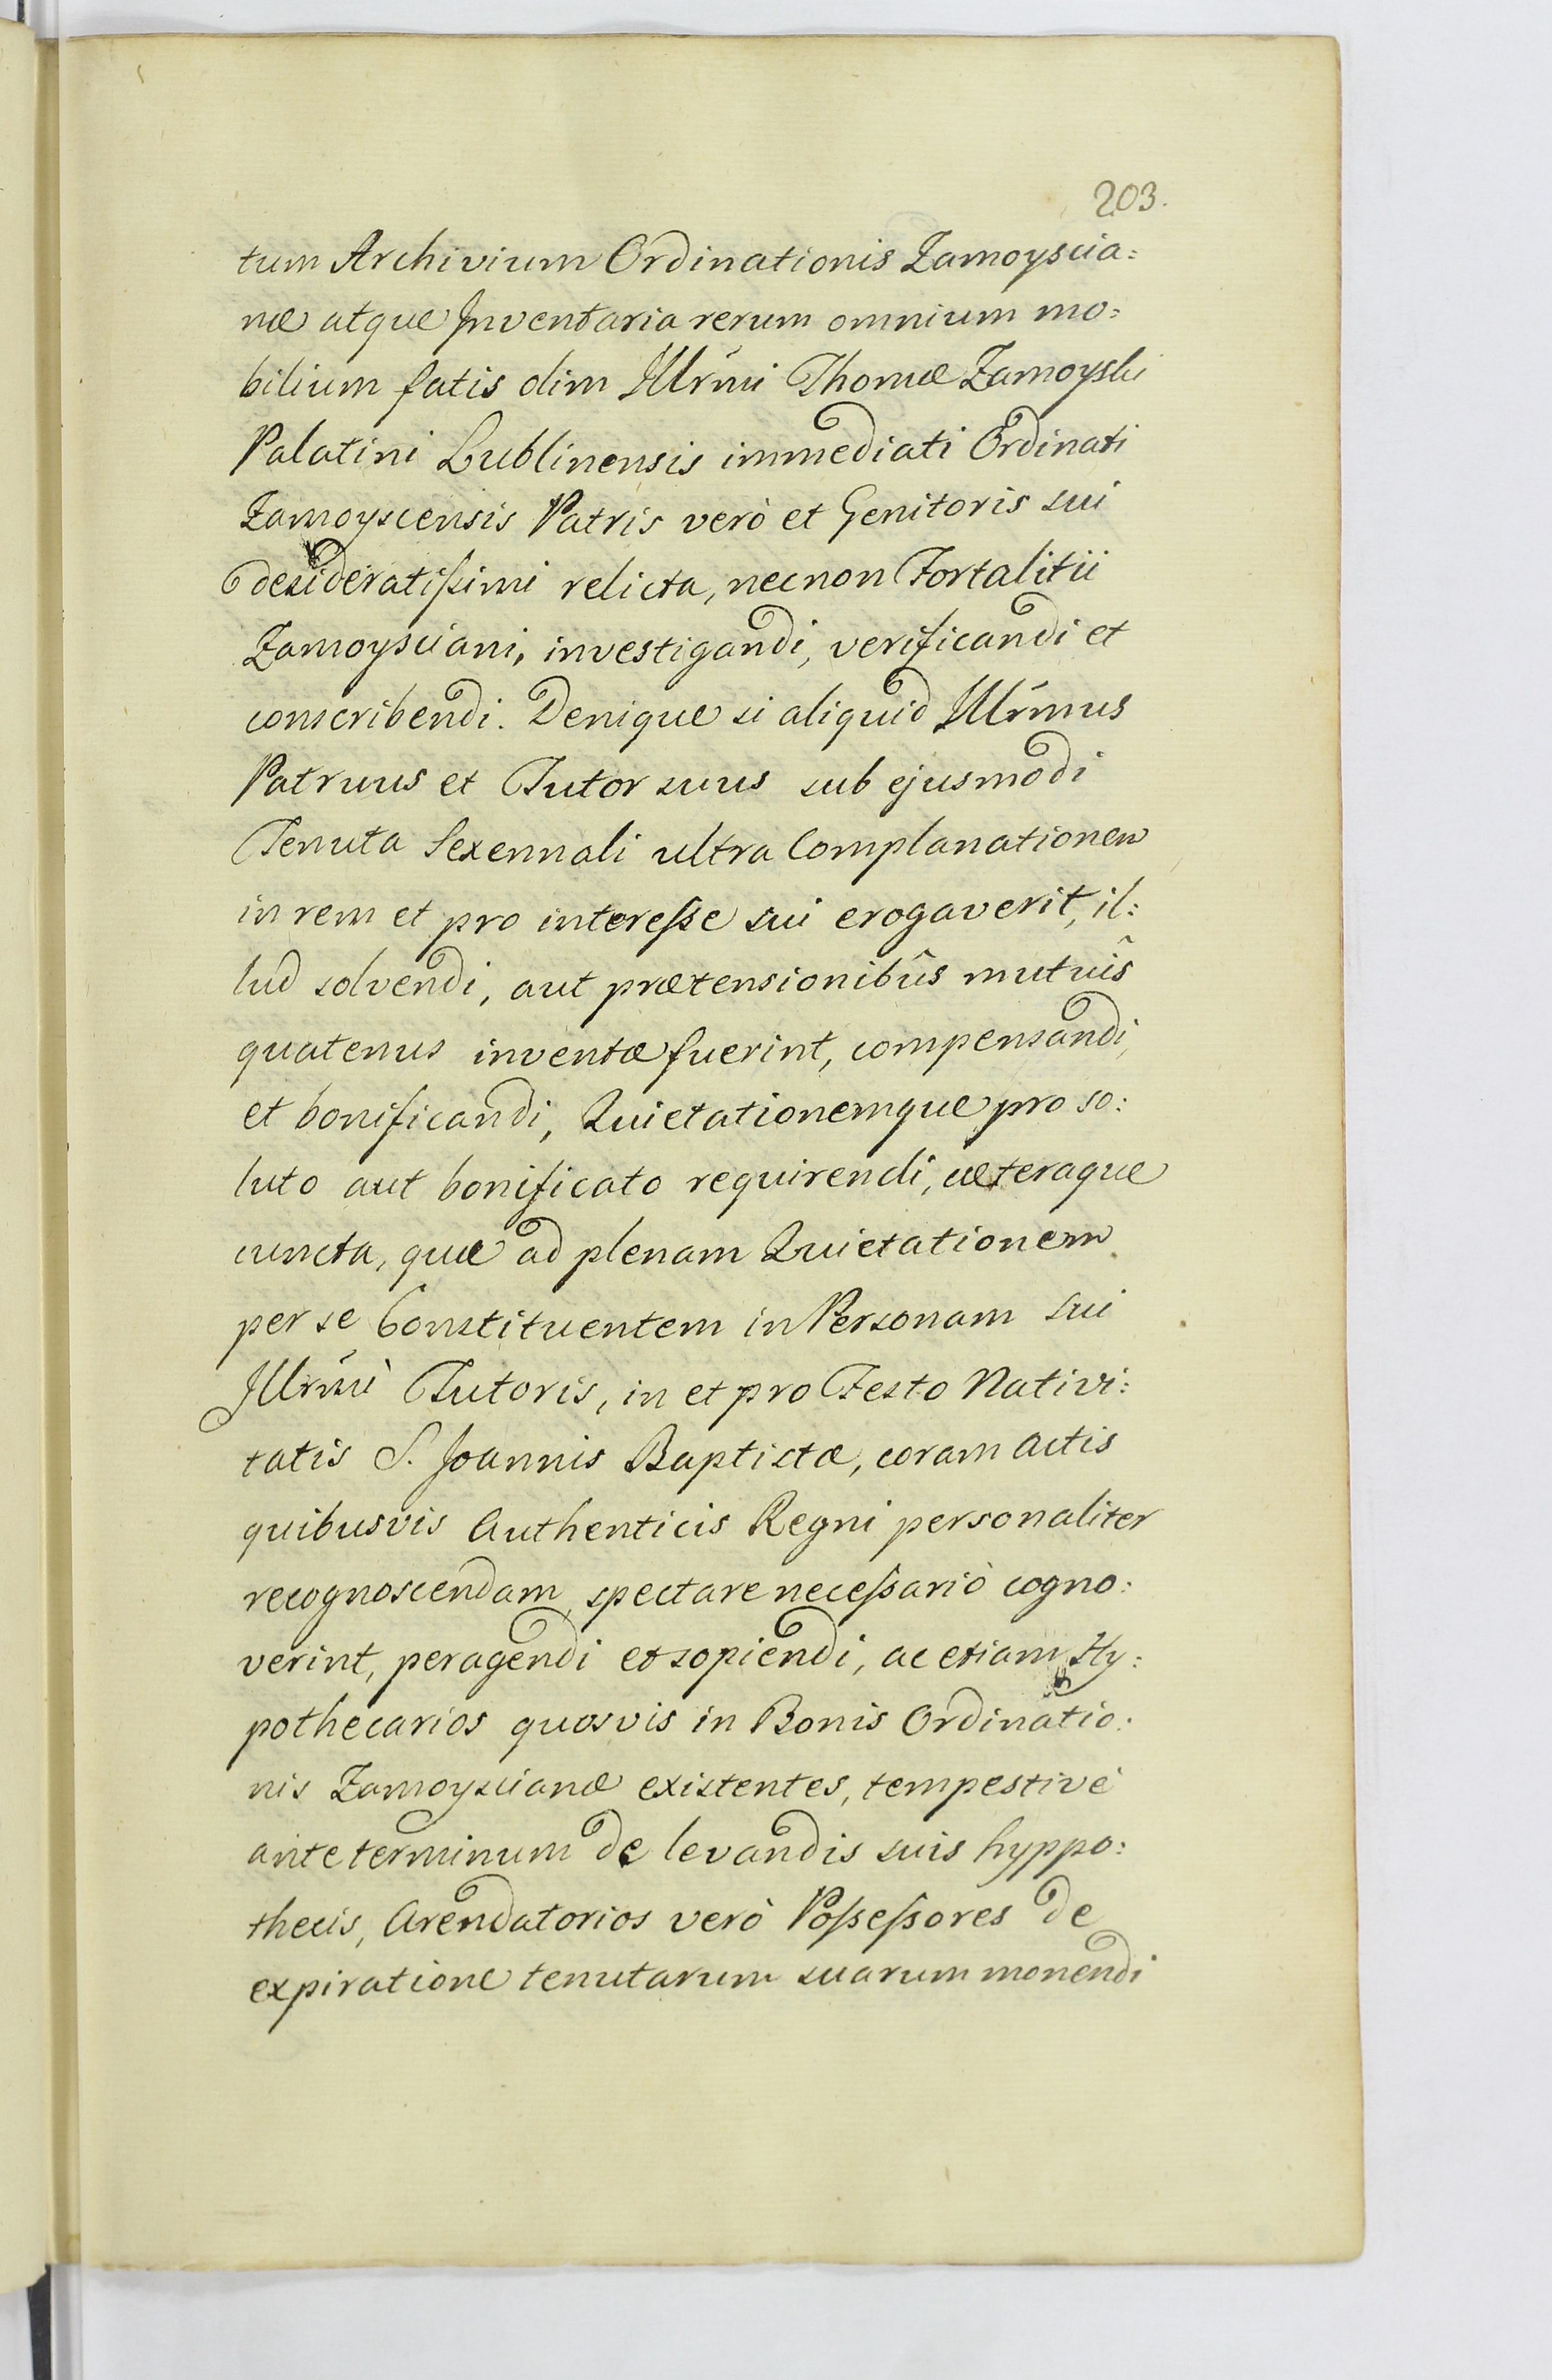 203.
tum Archivium Ordinationis Zamoyscia=
næ atque Inventaria rerum omnium mo=
bilium fatis olim Illr̃mi Thomæ Zamoyski
Palatini Lublinensis immediati Ordinati
Zamoyscensis Patris verò et Genitoris sui
desideratißimi relicta, necnon Fortalitii
Zamoysciani, investigandi, verificandi et
conscribendi. Denique si aliquid Illr̃mus
Patruus et Tutor suus sub ejusmodi
Tenuta Sexennali ultra Complanationem
in rem et pro intereße sui erogaverit, il=
lud solvendi, aut prætensionibûs mutuîs
quatenus inventæ fuerint, compensandi,
et bonificandi, Quietationemque pro so=
luto aut bonificato requirendi, cæteraque
cuncta, quæ ad plenam Quietationem
per se Constituentem in Personam sui
Illr̃mi Tutoris, in et pro Festo Nativi=
tatis S. Joannis Baptistæ, coram Actis
quibusvis Authenticis Regni personaliter
recognoscendam, spectare neceßariò cogno=
verint, peragendi et sopiendi, ac etiam Hy=
pothecarios quosvis in Bonis Ordinatio=
nis Zamoyscianæ existentes, tempestivè
ante terminum de levandis suis hyppo=
thecis, Arendatorios verò Poßeßores de
expiratione tenutarum suarum monendi